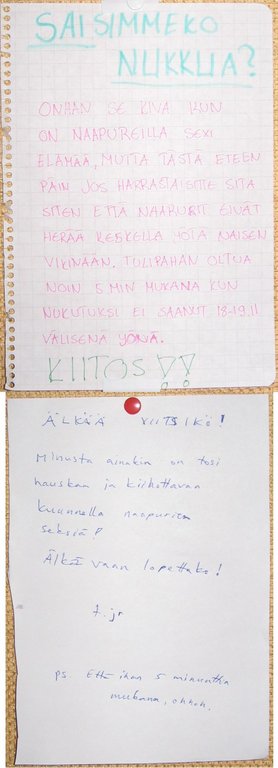 SAISIMMEKO
NUKKUA?
ONHAN SE KIVA KUN
ON NAAPUREILLA SEXI
ELÄMÄÄ, MUTTA TÄSTÄ ETEEN
PÄIN JOS HARRASTAISITTE SITÄ
SITEN ETTÄ NAAPURIT EIVÄT
HERÄÄ KESKELLÄ YÖTÄ NAISEN
VIKINÄÄN. TULIPAHAN OLTUA
NOIN 5 MIN MUKANA KUN
NUKUTUKSI EI SAANUT 18-19.11
VÄLISENÄ YÖNÄ.
KIITOS!!
ÄLKÄÄ VIITSIKÖ!
Minusta ainakin on tosi
hauskaa ja kiihottavaa
kuunnella naapurien
seksiä!
Älkää vaan lopettako!
t. jr
ps. Että ihan 5 minuuttia
mukana, ohhoh.